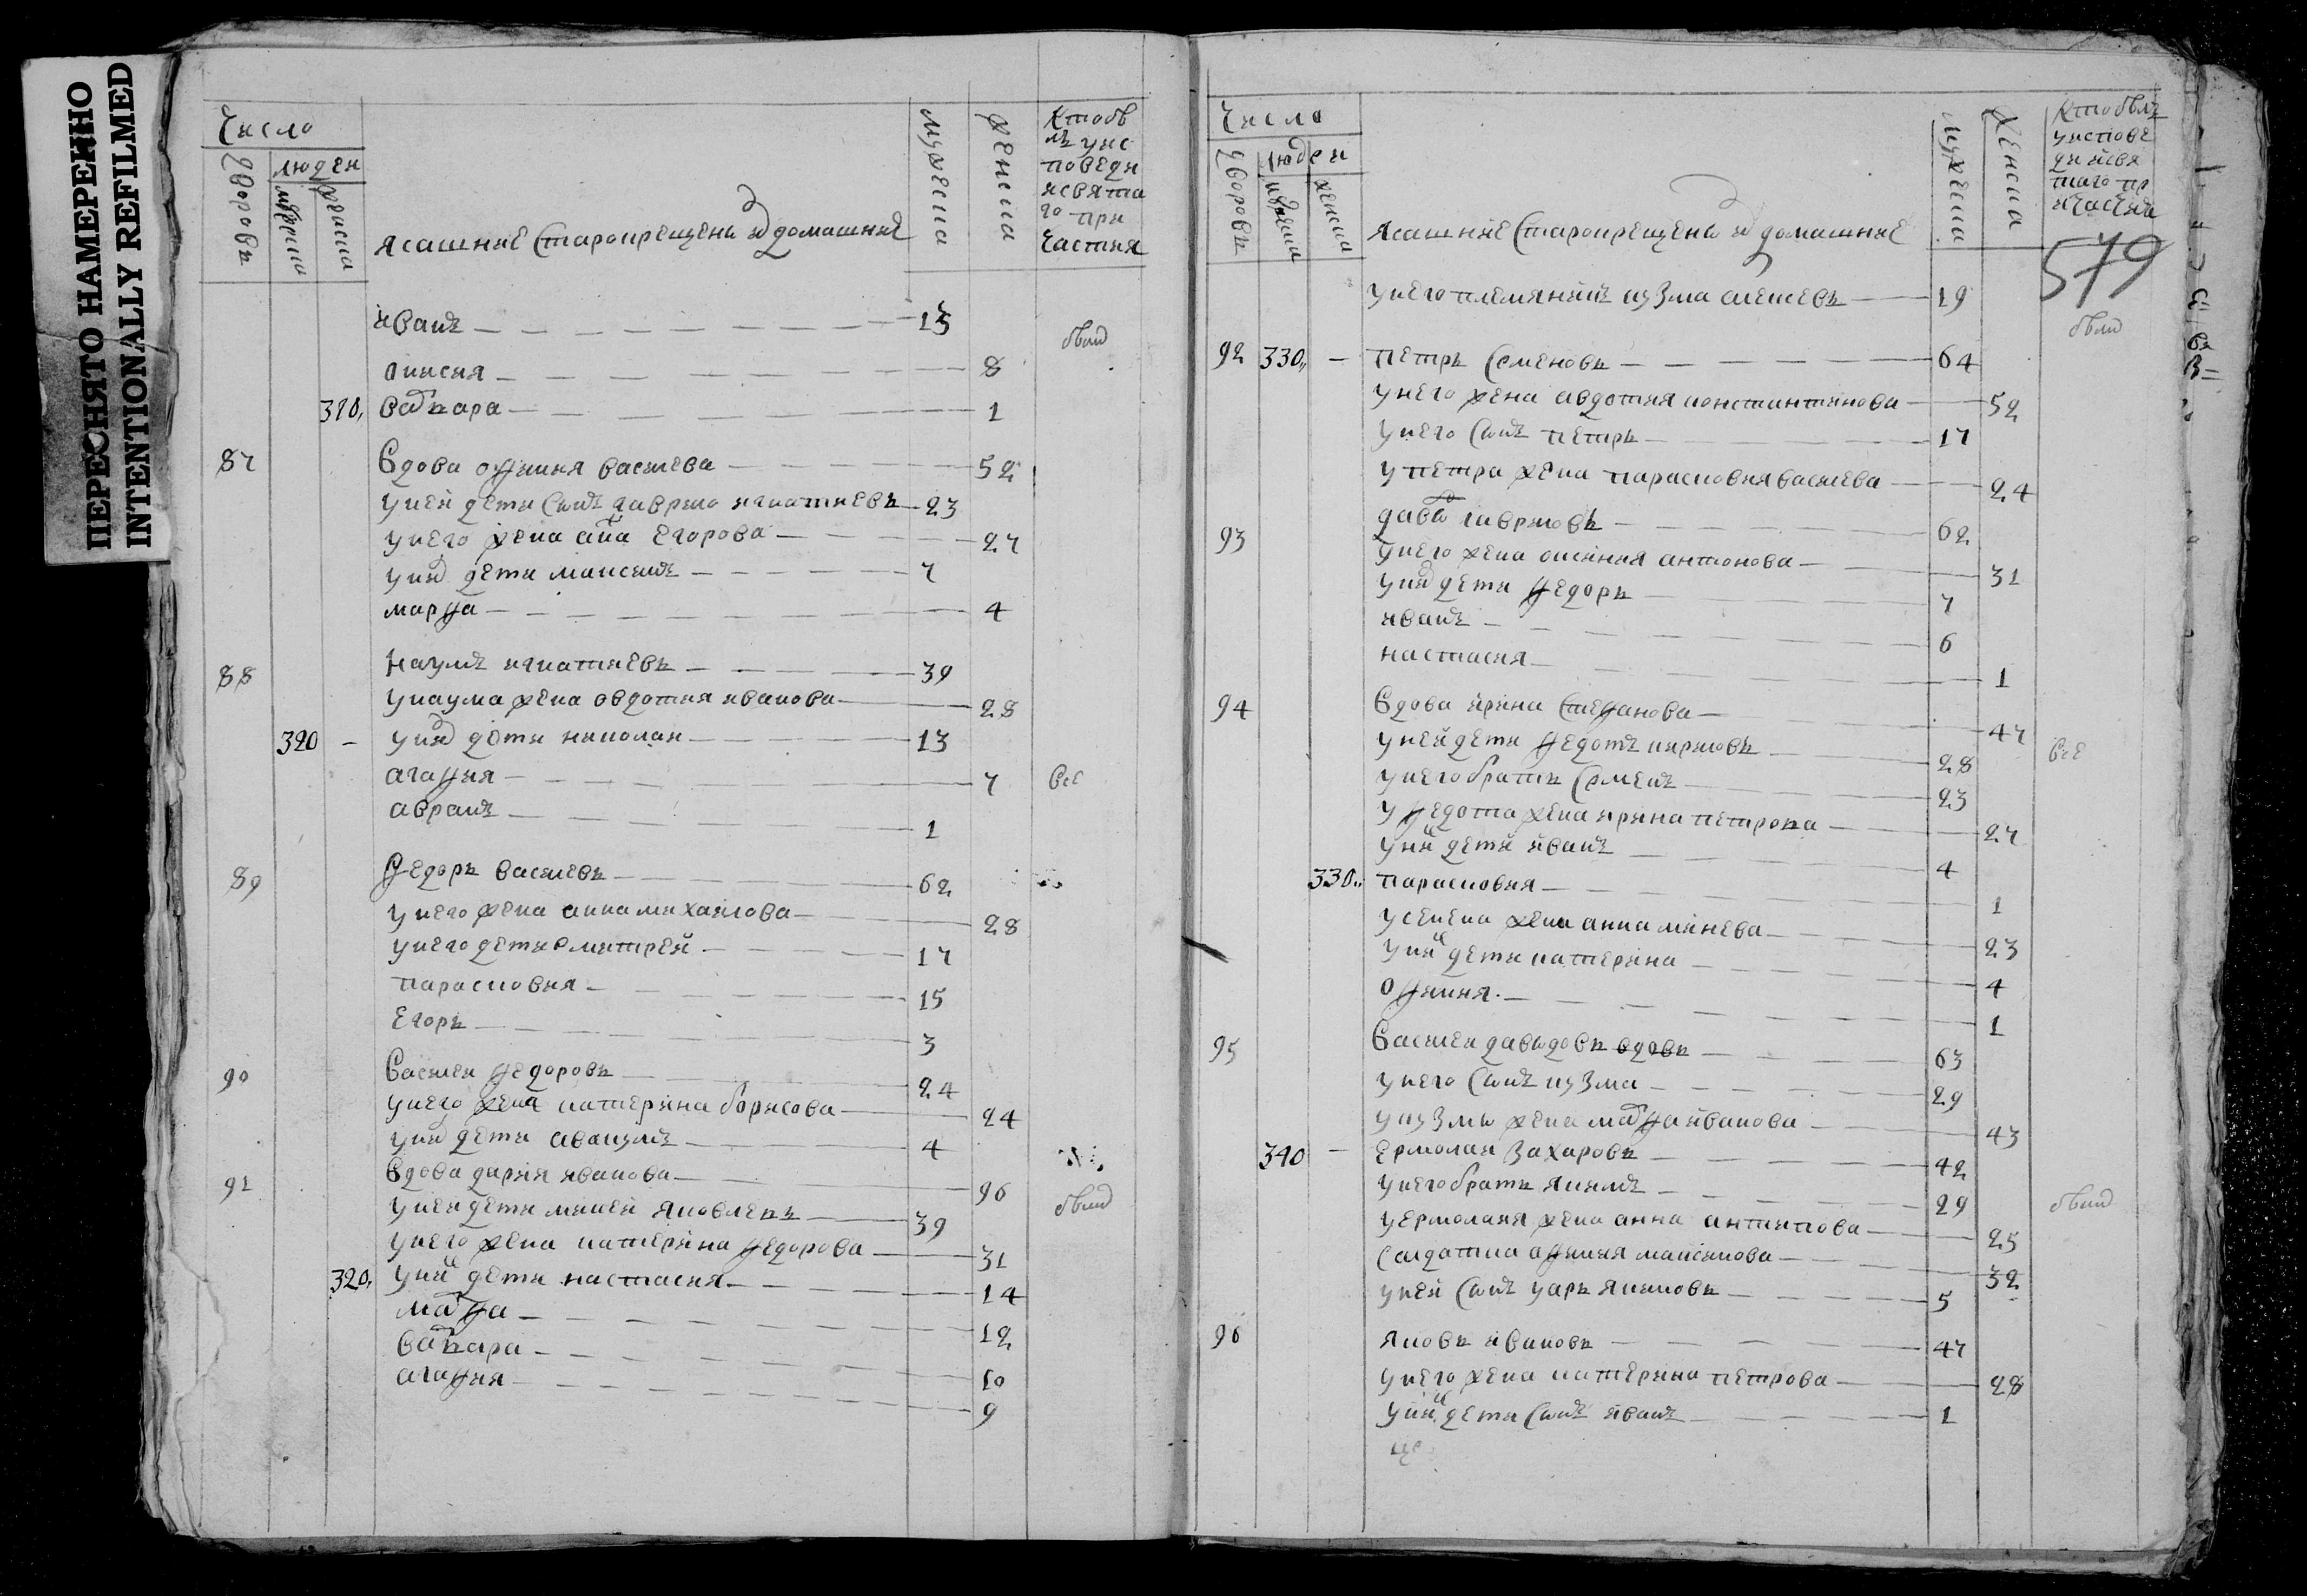 ПЕРЕСНЯТО НАМЕРЕННО
INTENTIONALLY REFILMED
Число
дворовъ
людеи
мужеска
женска
ясашние старокрещены и домашние
мужеска
женска
Кто былъ у исповеди и свята го при частия
иванъ 13
аксиня 8
310 варвара 1
87 вдова офимия васильева 52
у неи дети сынъ гаврило игнатиевъ 23
у него жена анна егорова 27
у них дети максимъ 7
марфа 4
88 наумъ игнатиевъ 39
у наума жена овдотия иванова 28
320 - у них дети николаи 13
агафия 7 все
авраамъ 1
89 федоръ васильевъ 62
у него жена анна михаилова 28
у него дети дмитреи 17
парасковия 15
егоръ 3
90 василеи федоровъ 24
у него жена катерина борисова 24
у них дети авакумъ 4
91 вдова дария иванова 96
у неи дети микеи яковлевъ 39 были
у него жена катерина федорова 31
320 у них дети настасия 14
марфа 12
варвара 10
агафия 9
были
Число
дворовъ
людеи
мужеска
женска
ясашние старокрещены и домашние
мужеска
женска
Кто былъ у исповеди и свя таго пр ичастия
579
у него племяникъ кузма алексевъ 19
были
92 330 - петръ семеновъ 64
у него жена авдотия констинтинова 52
у него сынъ петръ 17
у петра жена парасковия васильева 24
93 давыд гавриловъ 62
у него жена аксиния антонова 31
у них дети федоръ 7
иванъ 6
настасия 1
94 вдова ирина стефанова 47
у неи дети федотъ кириловъ 28 все
у него братъ семенъ 23
у федота жена ирина петрова 27
у них дети иванъ 4
330 парасковия 1
у семена жена анна минева 23
у них дети катерина 4
офимия 1
95 василеи давыдовъ вдовъ 63
у него сынъ кузма 29
у кузмы жена марфа иванова 43
340 - ермолаи захаровъ 42
у него братъ якимъ 29 были
у ермолая жена анна антипова 25
салдатка афимия максимова 32
у неи сынъ уаръ якимовъ 5
96 яковъ ивановъ 47
у него жена катерина петрова 28
у них дети сынъ иванъ 1